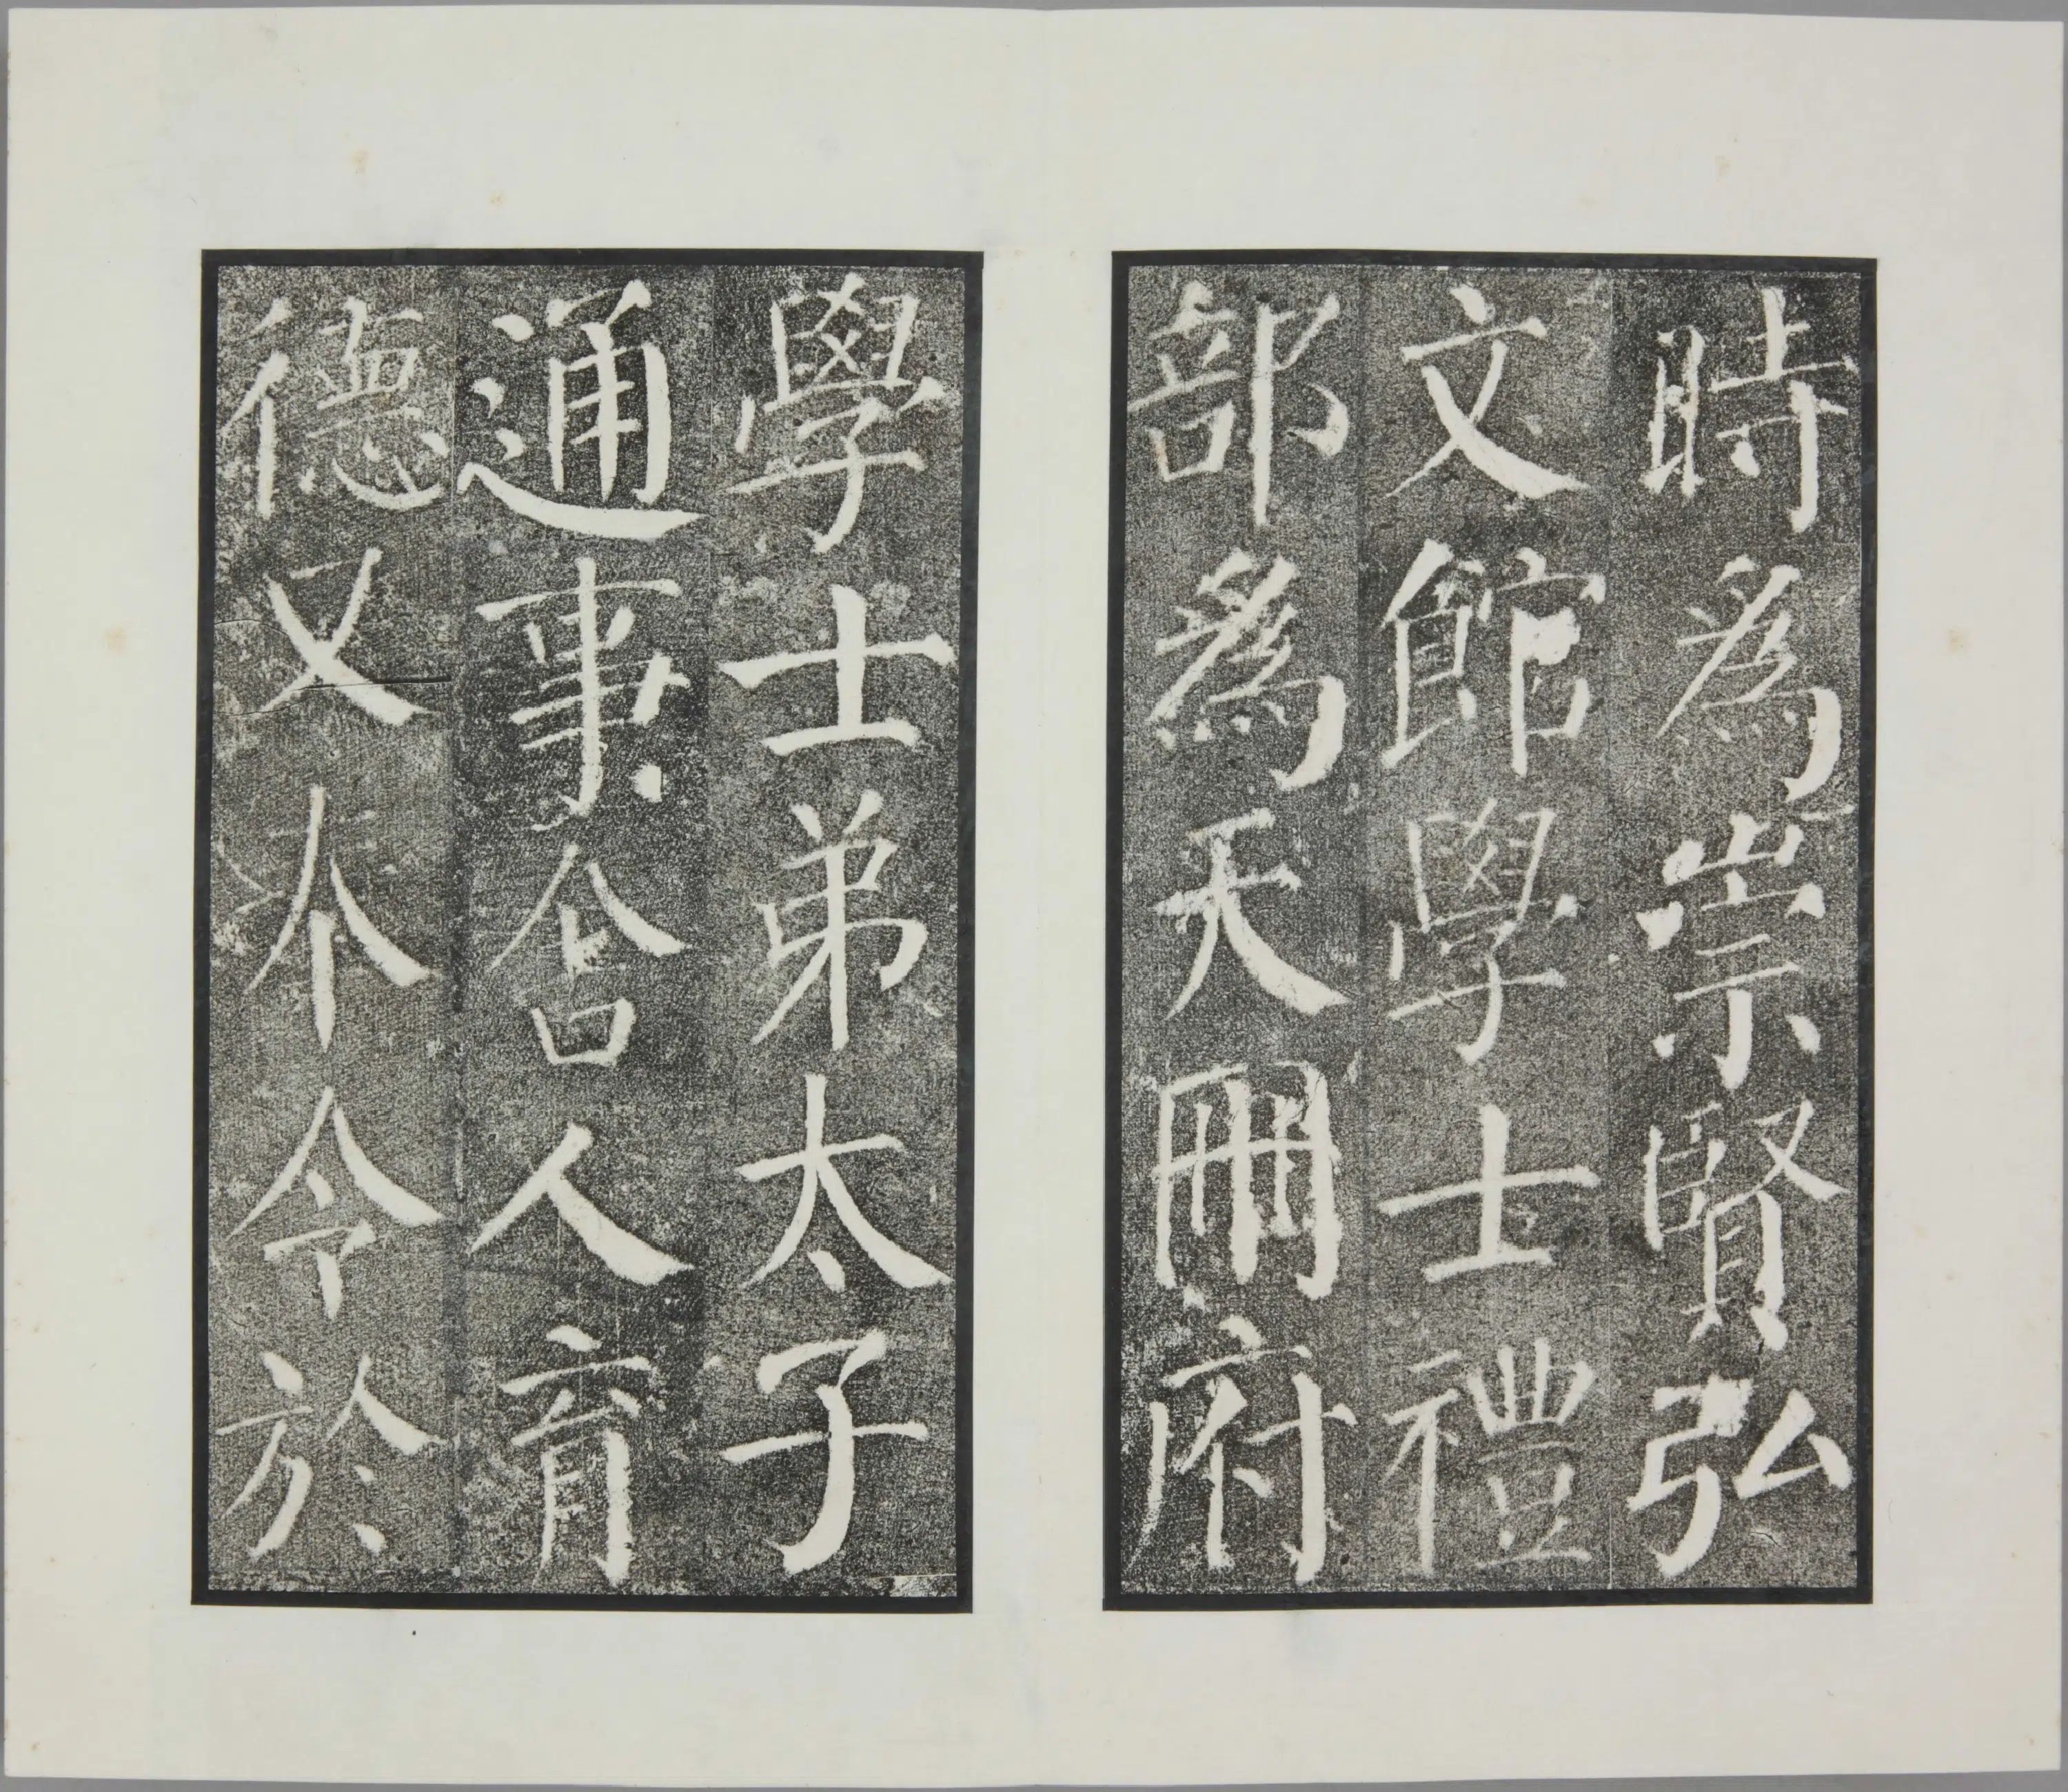 時為崇賢弘
文館學士禮
部為天冊府
學士弟太子
通事舍人育
德又奉令於